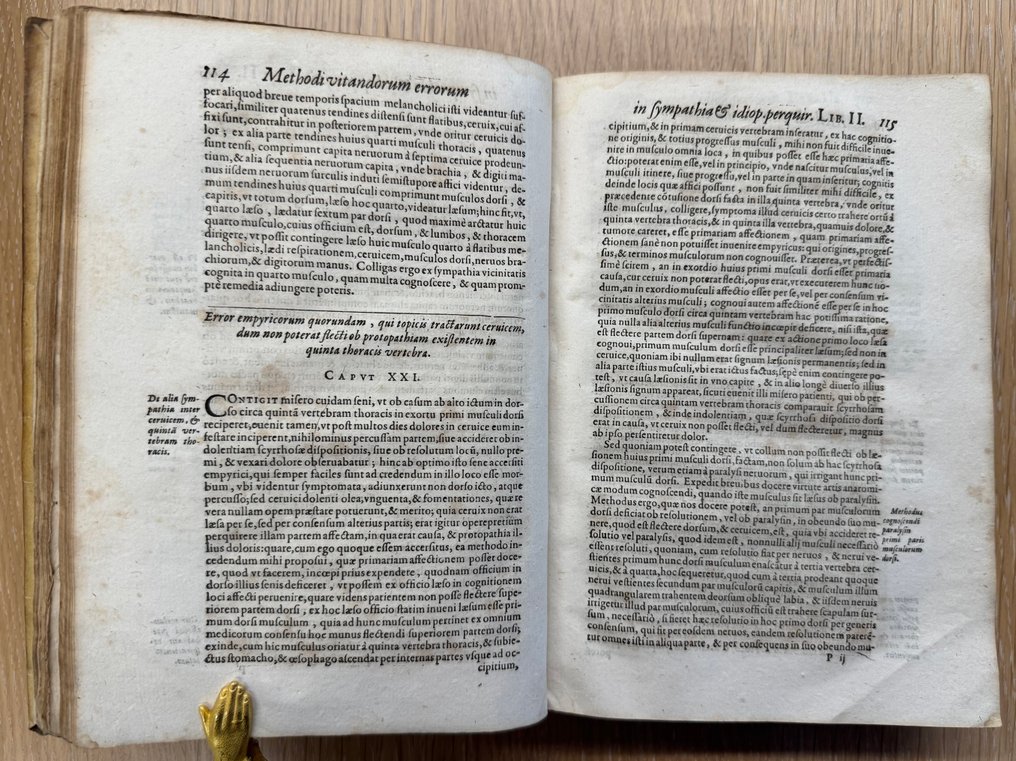 114 Methodi vitandorum errorum
per aliquod breue temporis spacium melancholici isti videantur suf-
focari, similiter quatenus tendines distensi sunt flatibus, ceruix, cui af-
fixi sunt, contrahitur in posteriorem partem, vnde oritur ceruicis do-
lor; ex alia parte tendines huius quarti musculi thoracis, quatenus
sunt tensi, comprimunt capita neruorum à septima ceruice prodeun-
tium, & alia sequentia neruorum capita, vnde brachia, & digiti ma-
nus iisdem neruorum surculis induti semistupore affici videntur, de-
mum tendines huius quarti musculi comprimunt musculos dorsi, &
capitis, vt totum dorsum, læso hoc quarto, videatur læsum; hinc fit, vt,
quarto læso, lædatur sextum par dorsi, quod maximè arctatur huic
quarto musculo, cuius officium est, dorsum, & lumbos, & thoracem
dirigere, vt possit contingere læso huic musculo quarto à flatibus me-
lancholicis, lædi respirationem, ceruicem, musculos dorsi, neruos bra-
chiorum, & digitorum manus. Colligas ergo ex sympathia vicinitatis
cognita in quarto musculo, quam multa cognoscere, & quam prom-
ptè remedia adiungere poteris.
Error empyricorum quorundam, qui topicis tractarunt ceruicem,
dum non poterat flecti ob protopathiam existentem in
quinta thoracis vertebra.
CAPVT XXI.
De alia sym-
pathia inter
ceruicem, &
quintã ver-
tebram tho-
racis.
CONTIGIT misero cuidam seni, vt ob casum ab alto ictum in dor-
so circa quintã vertebram thoracis in exortu primi musculi dorsi
reciperet, euenit tamen, vt post multos dies dolores in ceruice eum in-
festare inciperent, nihilominus percussam partem, siue acciderit ob in-
dolentiam scyrrhosæ dispositionis, siue ob resolutum locũ, nullo pre-
mi, & vexari dolore obseruabatur; hinc ab optimo isto sene accersiti
empyrici, qui semper faciles sunt ad credendum in illo loco esse mor-
bum, vbi videntur symptomata, adiunxerunt non dorso icto, atque
percusso; sed ceruici dolenti olea, vnguenta, & fomentationes, quæ re
vera nullam opem præstare potuerunt, & merito; quia ceruix non erat
læsa per se, sed per consensum alterius partis; erat igitur operepretium
perquirere illam partem affectam, in qua erat causa, & protopathia il-
lius doloris: quare, cum ego quoque essem accersitus, ea methodo in-
cedendum mihi proposui, quæ primariam affectionem posset doce-
re, quod vt facerem, incœpi prius expendere, quodnam officium in
dorso illius senis deficeret, vt possem ex officio læso in cognitionem
loci affecti peruenire, quare videns patientem non posse flectere supe-
riorem partem dorsi, ex hoc læso officio statim inueni læsum esse pri-
mum dorsi musculum, quia ad hunc musculum pertinet ex omnium
medicorum consensu hoc munus flectendi superiorem partem dorsi;
exinde, cum hic musculus oriatur à quinta vertebra thoracis, & subie-
ctus stomacho, & œsophago ascendat per internas partes vsque ad oc-
cipitium,
in sympathia & idiop. perquir. LIB. II. 115
cipitium, & in primam ceruicis vertebram inseratur, ex hac cognitio-
ne originis, & totius progressus musculi, mihi non fuit difficile inue-
nire in musculo omnia loca, in quibus posset esse hæc primaria affe-
ctio: poterat enim esse, vel in principio, vnde nascitur musculus, vel in
musculi itinere, siue progressu, vel in parte in quam inseritur; cognitis
deinde locis quæ affici possunt, non fuit similiter mihi difficile, ex
præcedente cõtusione dorsi facta in illa quinta vertebra, vnde oritur
iste musculus, colligere, symptoma illud ceruicis certo trahere ortũ à
quinta vertebra thoracis, & in quinta illa vertebra, quamuis dolore, &
tumore careret, esse primariam affectionem, quam primariam affe-
ctionem sanè non potuisset inuenire empyricus: qui origines, progres-
sus, & terminos musculorum non cognouisset. Præterea, vt perfectis-
simè scirem, an in exordio huius primi musculi dorsi esset primaria
causa, cur ceruix non poterat flecti, opus erat, vt executerem hunc no-
dum, an in exordio musculi affectio esset per se, vel per consensum vi-
cinitatis alterius musculi; cognoui autem affectionē esse per se in hoc
primo musculo dorsi circa quintam vertebram hac potissima ratione,
quia nulla alia alterius musculi functio incœpit deficere, nisi ista, quæ
est flectere partem dorsi supernam: quare ex actione primo loco læsa
cognoui, primum musculum dorsi esse principaliter læsum; sed non in
ceruice, quoniam ibi nullum erat signum læsionis permanentis; sed in
alia parte istius musculi, vbi erat ictus factus; sępè enim contingere po-
test, vt causa læsionis sit in vno capite, & in alio longè diuerso illius
læsionis signum appareat, sicuti euenit illi misero patienti, qui ob per-
cussionem circa quintam vertebram thoracis comparauit scyrrhosam
dispositionem, & inde indolentiam, quæ scyrrhosa dispositio dorsi
erat in causa, vt ceruix non posset flecti, vel dum flecteretur, magnus
ab ipso persentiretur dolor.
Sed quoniam potest contingere, vt collum non possit flecti ob læ-
sionem huius primi musculi dorsi, factam, non solum ab hac scyrrhosa
dispositione, verum etiam à paralysi neruorum, qui irrigant hunc pri-
mum musculũ dorsi. Expedit breuibus docere virtute artis anatomi-
cæ modum cognoscendi, quando iste musculus sit læsus ob paralysin.
Methodus ergo, quæ nos docere potest, an primum par musculorum
dorsi deficiat ob resolutionem, vel ob paralysin, in obeundo suo mu-
nere, quod est flectere dorsum, & ceruicem, est, quia vbi accideret re-
solutio vel paralysis, quod idem est, nonnulli alij musculi necessariò
essent resoluti, quoniam, cum resolutio fiat per neruos, & nerui ve-
stientes primum hunc dorsi musculum enascãtur à tertia vertebra cer-
uicis, & à quarta, hoc sequeretur, quod cum à tertia prodeant quoque
nerui vestientes secundum par musculorũ capitis, & musculum illum
quadrangularem trahentem deorsum obliquè labia, & iisdem neruis
irrigetur illud par musculorum, cuius officiũ est trahere scapulam sur-
sum, necessariò, si fieret hæc resolutio in hoc primo dorsi per generis
consensum, qui fit per eosdem neruos, eandem resolutionem paterē-
tur omnes isti in aliqua parte, & per consequens in suo obeundo mu-
Methodus
cognoscendi
paralysin
primi paris
musculorum
dorsi.
P ij